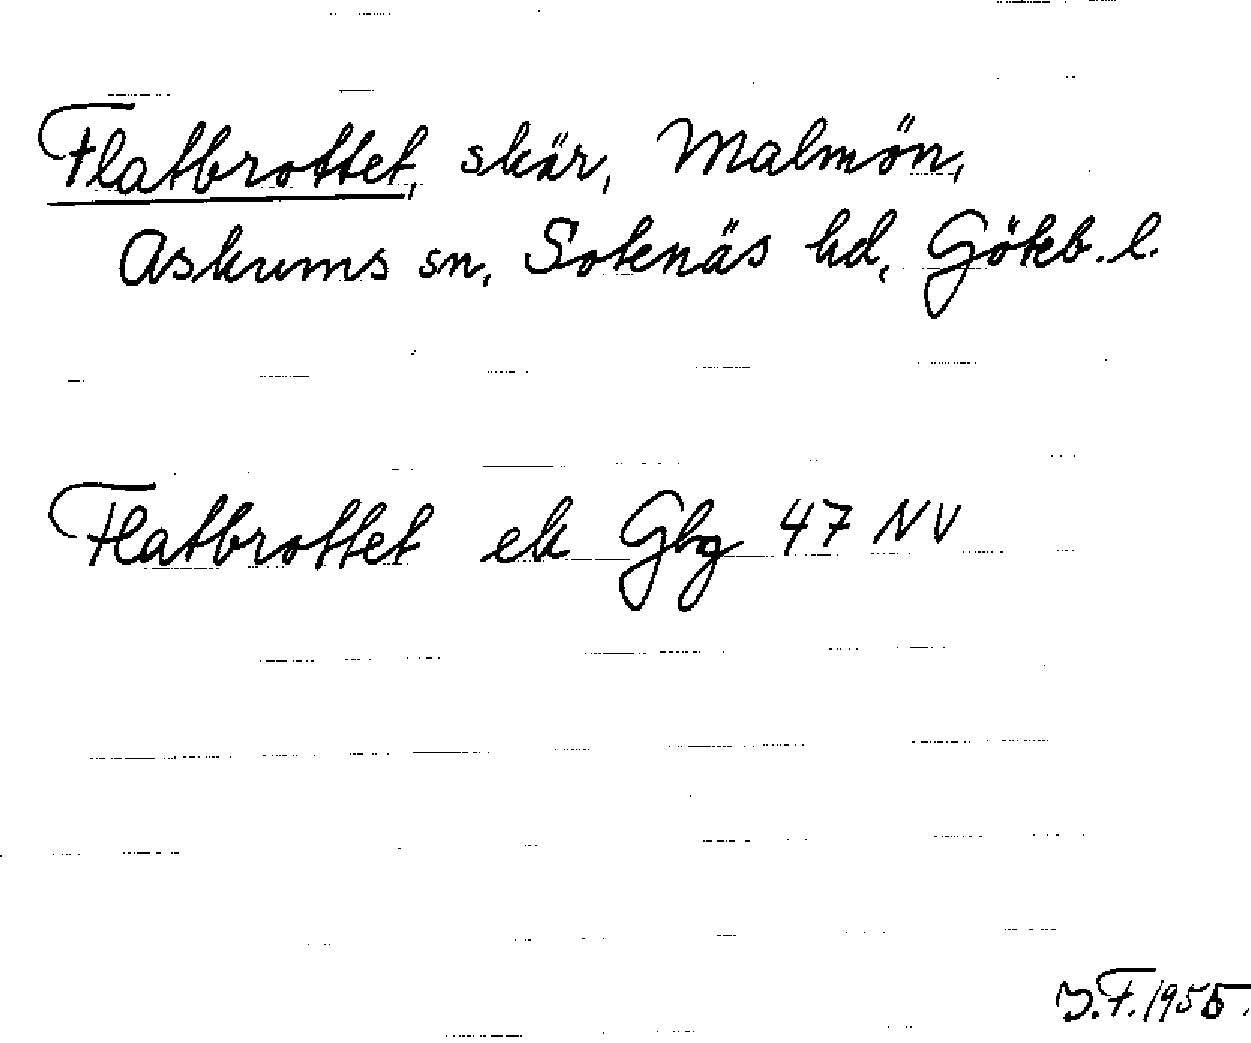 Flatbrottet, skär, Malmön,
Askums sn, Sotenäs hd, Göteb. l.
Flatbrottet ek Gbg 47 NV
J.F. 1955.